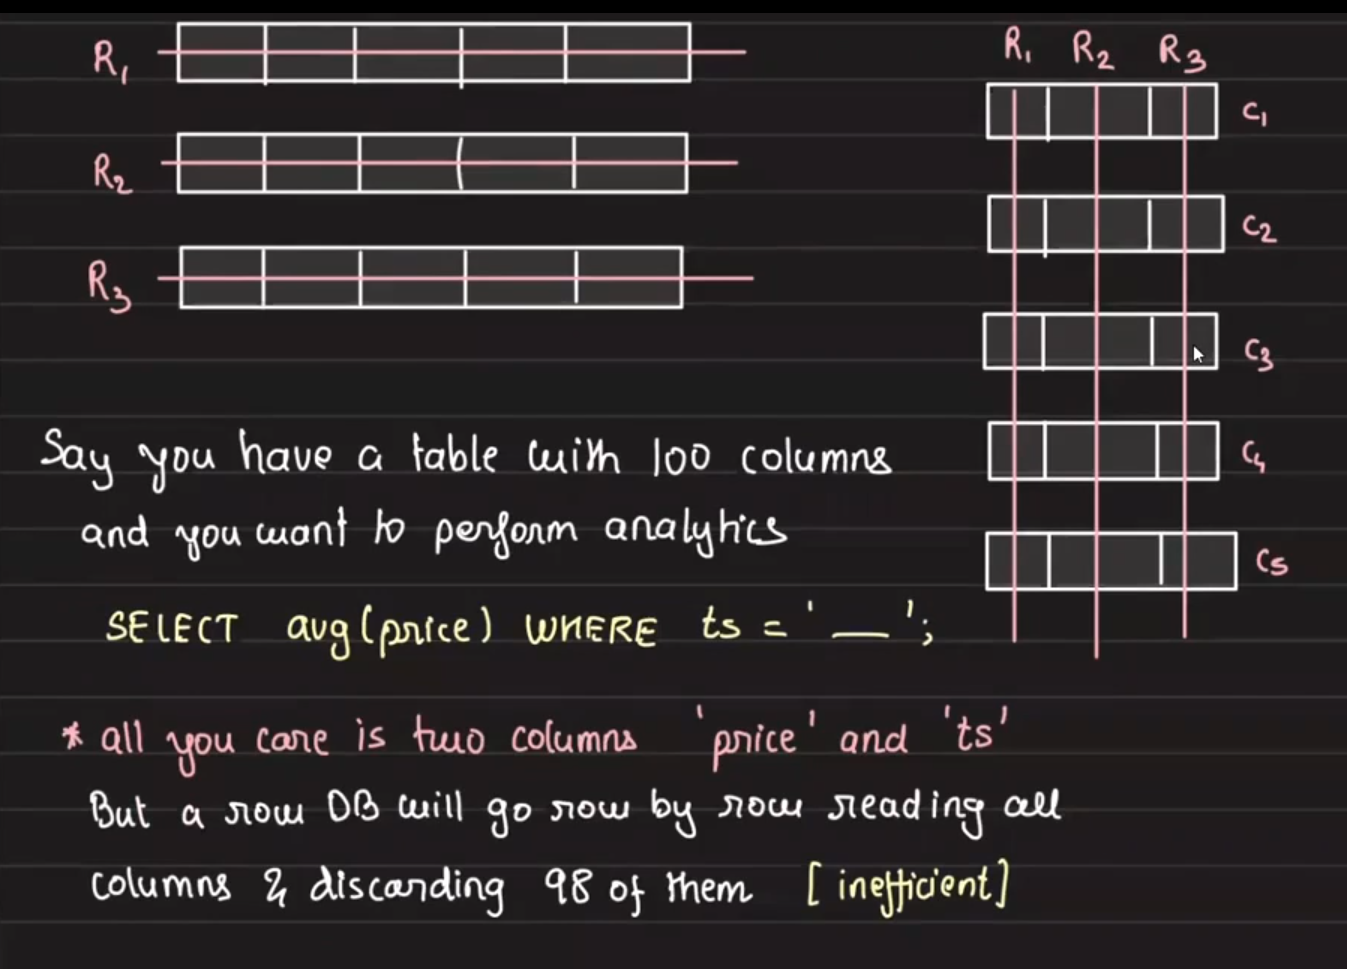 R1
R2
R3
R1 R2 R3
C1
C2
C3
C4
C5
Say you have a table with 100 columns
and you want to perform analytics
SELECT avg(price) WHERE ts = '__';
* all you care is two columns 'price' and 'ts'
But a row DB will go row by row reading all
columns & discarding 98 of them [inefficient]